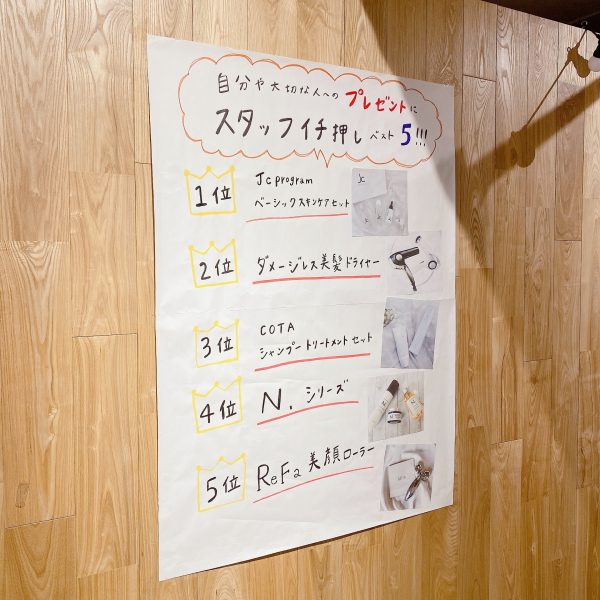 自分や大切な人への プレゼントに
スタッフイチ押し ベスト 5!!!
1位
Jc program
ベーシックスキンケアセット
2位
ダメージレス美髪ドライヤー
3位
COTA
シャンプートリートメントセット
4位
N. シリーズ
5位
ReFa 美顔ローラー